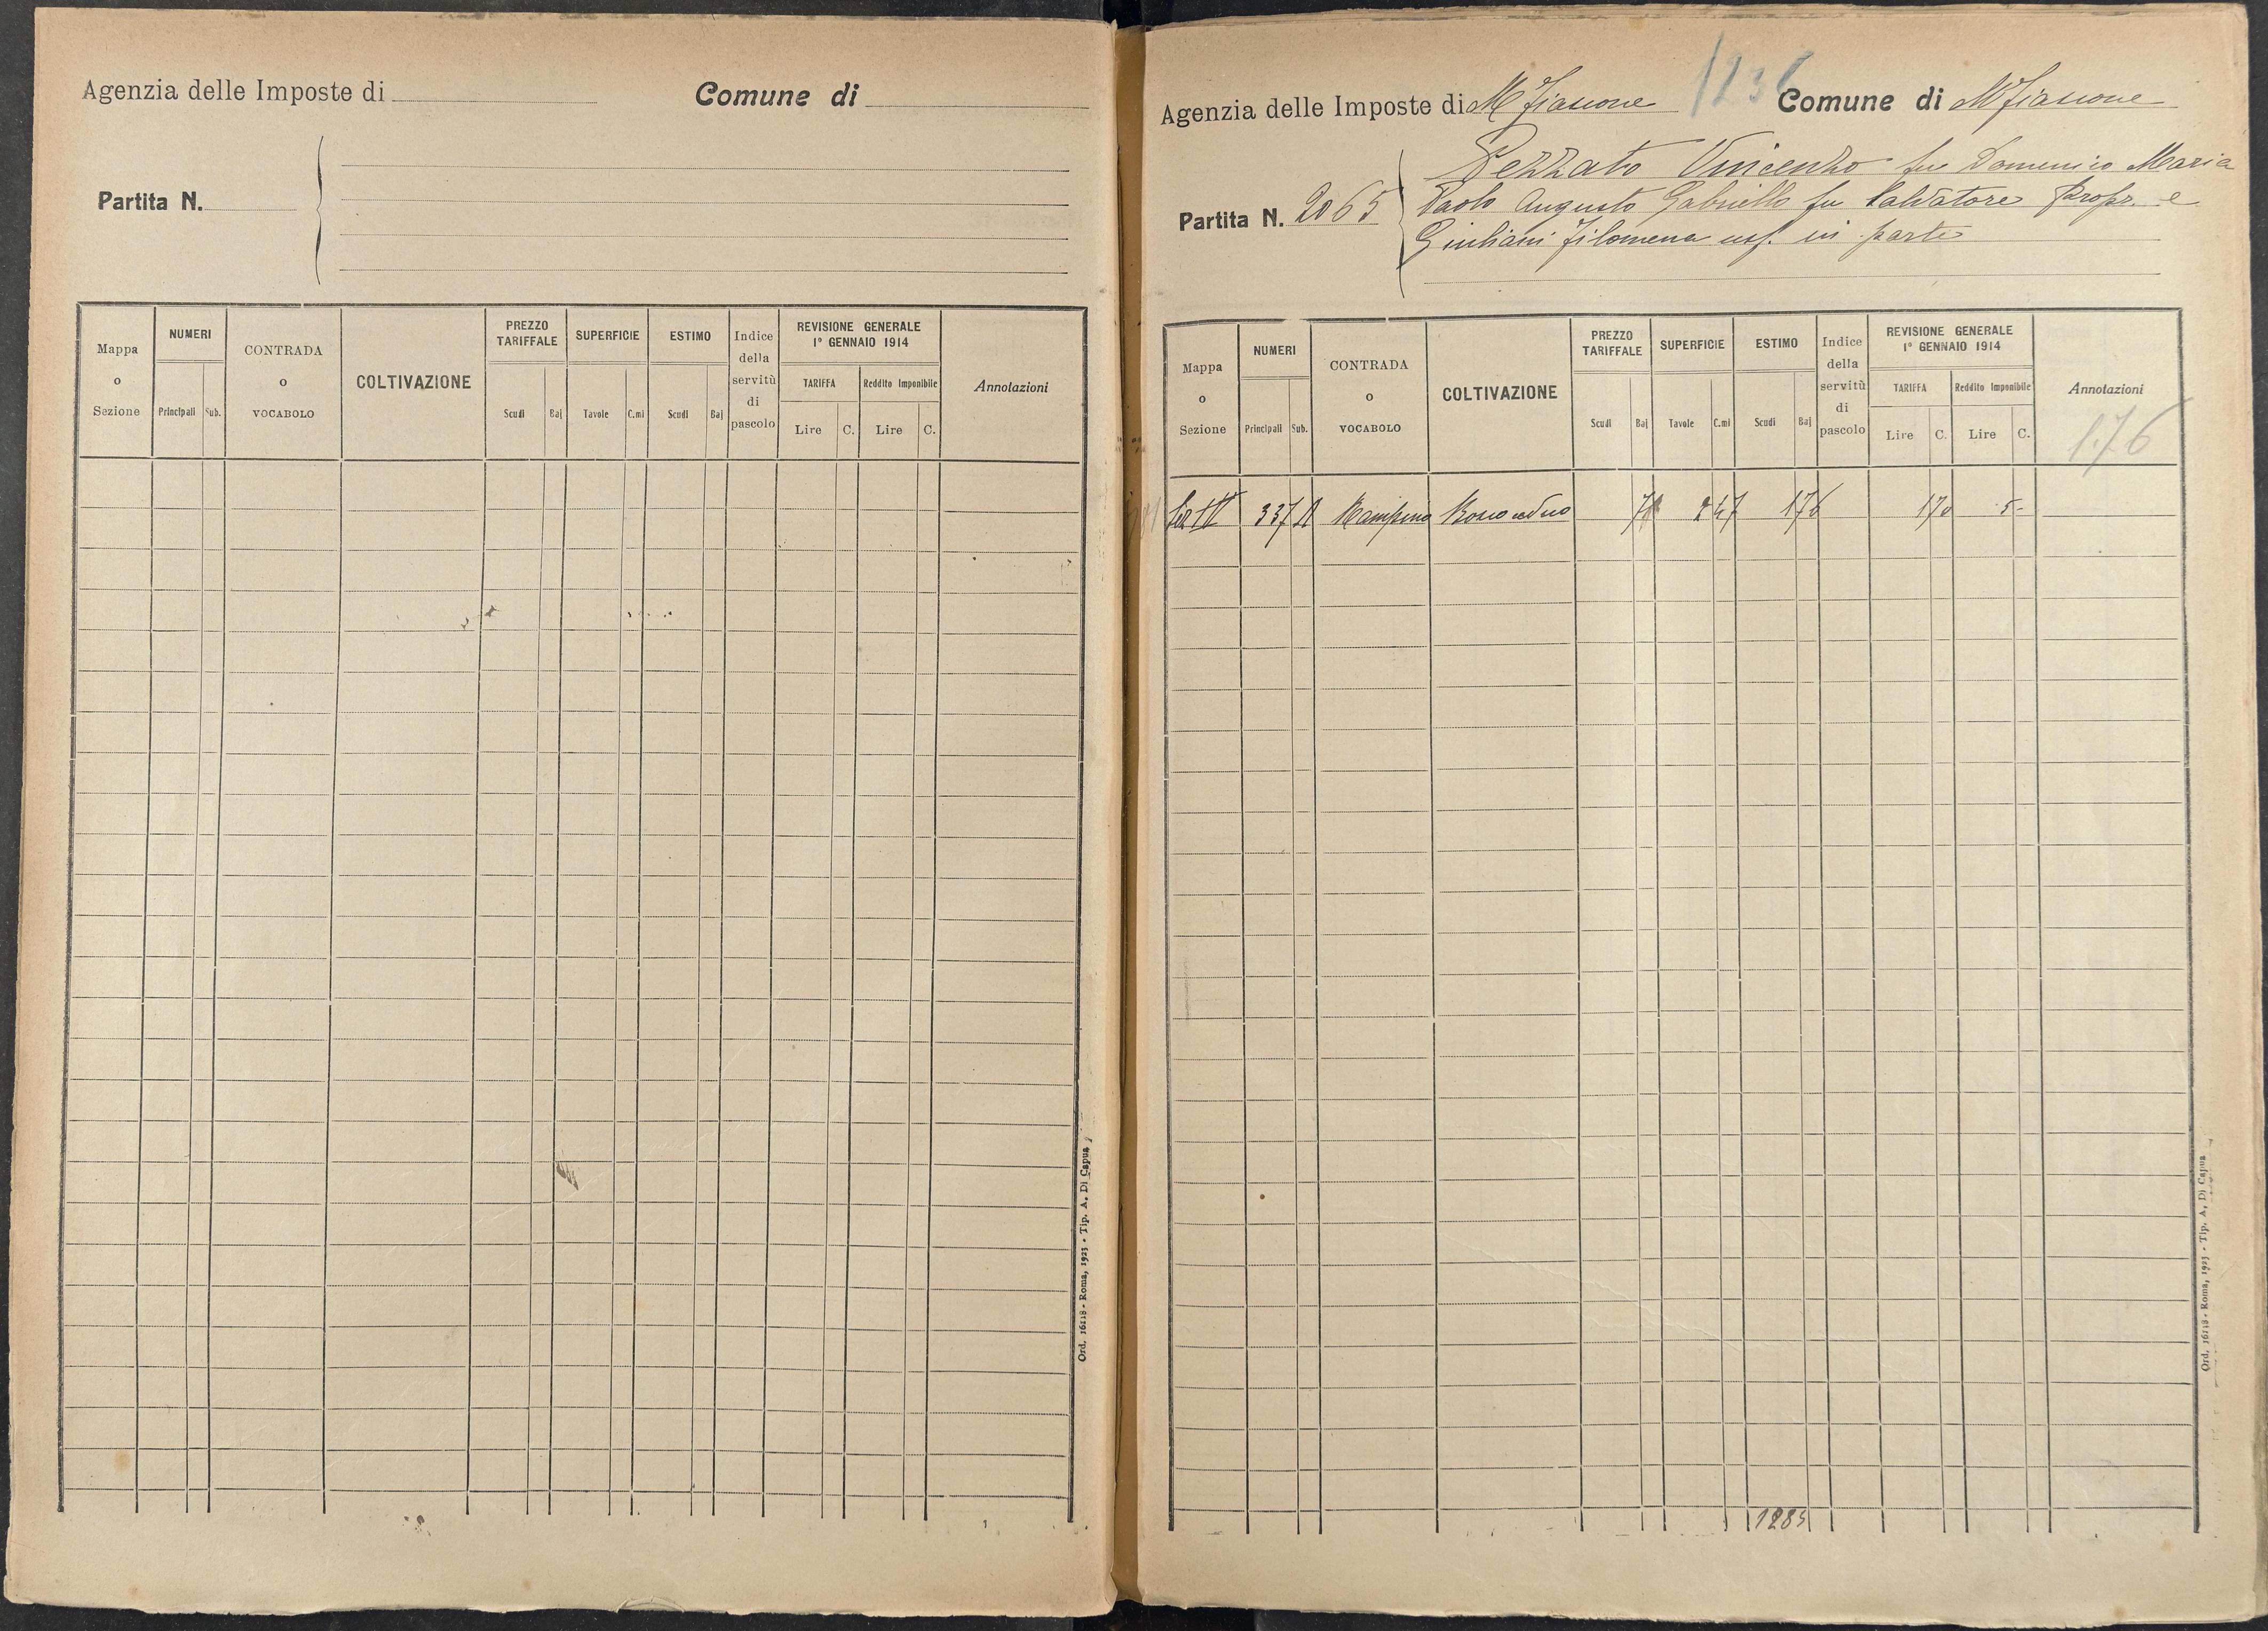 Agenzia delle Imposte di
Comune di
Partita N.
Mappa o Sezione
NUMERI
Principali
Sub.
CONTRADA o VOCABOLO
COLTIVAZIONE
PREZZO TARIFFALE
Scudi
Baj
SUPERFICIE
Tavole
C.mi
ESTIMO
Scudi
Baj
Indice della servitù di pascolo
REVISIONE GENERALE
1° GENNAIO 1914
TARIFFA
Lire
C.
Reddito Imponibile
Lire
C.
Annotazioni
Ord. 16118 - Roma, 1923 - Tip. A. Di Capua
Agenzia delle Imposte di M Fiascone
Comune di M Fiascone
Partita N. 2065
Pezzato Vincenzo fu Domenico Maria
Paolo Augusto Gabriello fu Salvatore Propr. e
Giuliani Filomena usf. in parte
Mappa o Sezione
NUMERI
Principali
Sub.
CONTRADA o VOCABOLO
COLTIVAZIONE
PREZZO TARIFFALE
Scudi
Baj
SUPERFICIE
Tavole
C.mi
ESTIMO
Scudi
Baj
Indice della servitù di pascolo
REVISIONE GENERALE
1° GENNAIO 1914
TARIFFA
Lire
C.
Reddito Imponibile
Lire
C.
Annotazioni
1.76
337 247 176 170 5-
1285
Ord. 16118 - Roma, 1923 - Tip. A. Di Capua